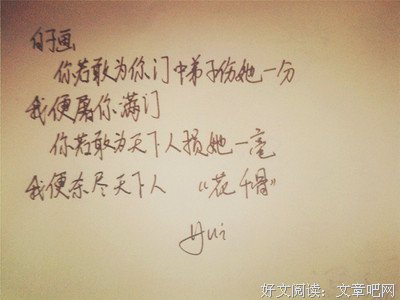 白子画
你若敢为你门中弟子伤她一分
我便屠你满门
你若敢为天下人损她一毫
我便杀尽天下人 《花千骨》
yui
好文阅读：文章吧网